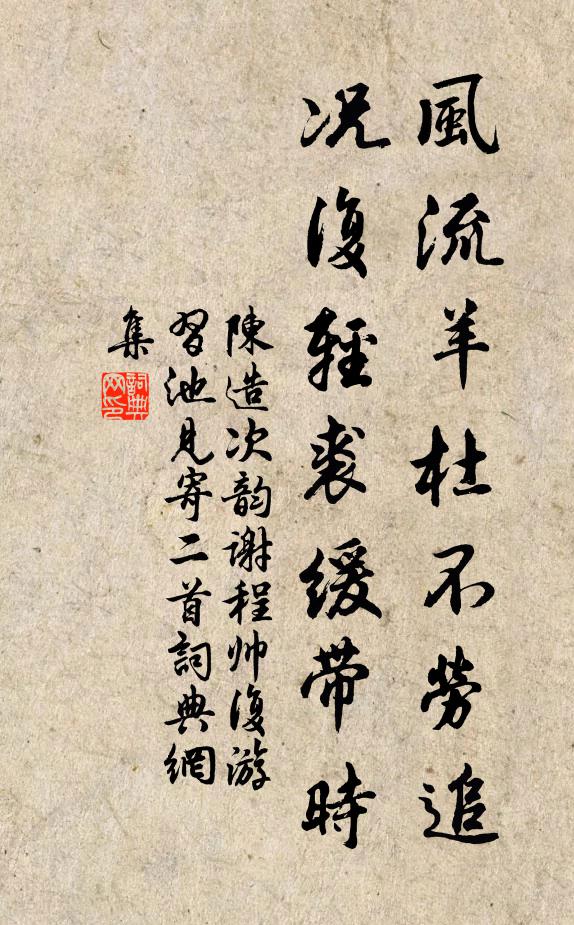 風流羊杜不勞追
况復輕裘緩带時
陳造次韵謝程帅復游
習池見寄二首詞典網
集
詞典网印